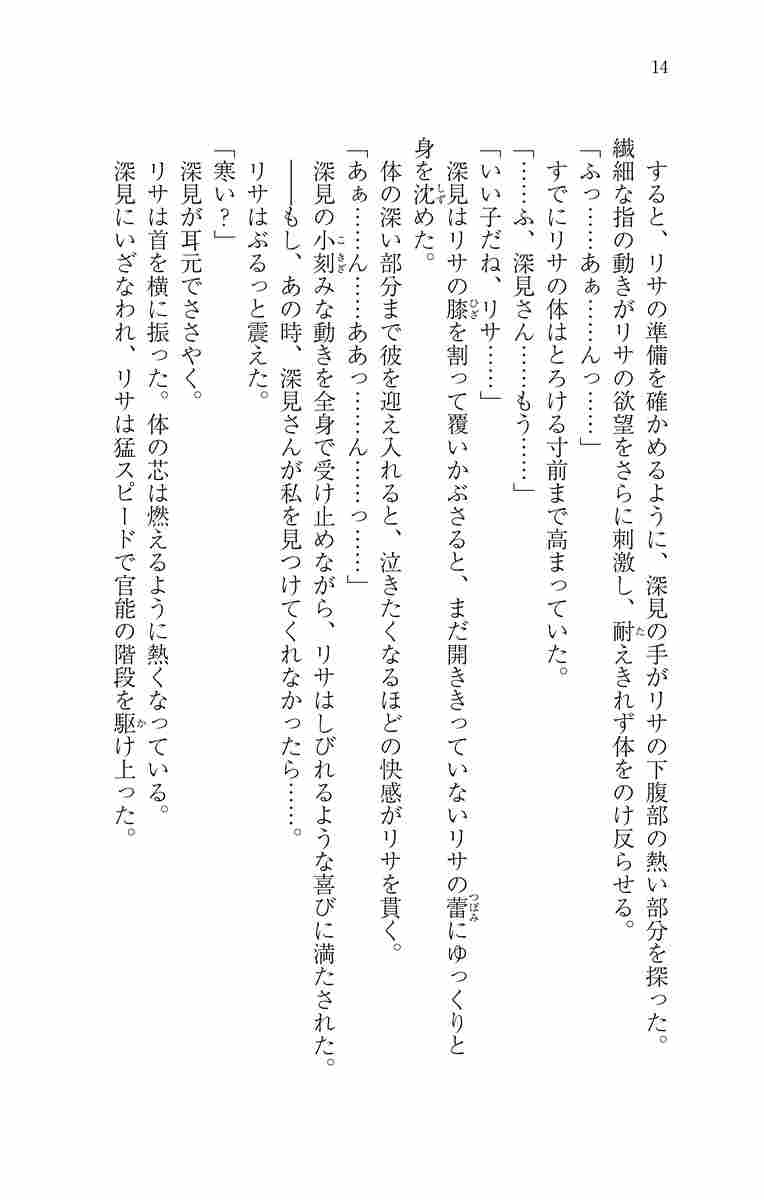 14
すると、リサの準備を確かめるように、深見の手がリサの下腹部の熱い部分を探った。
繊細な指の動きがリサの欲望をさらに刺激し、耐えきれず体をのけ反らせる。
「ふっ……あぁ……んっ……」
すでにリサの体はとろける寸前まで高まっていた。
「……ふ、深見さん……もう……」
「いい子だね、リサ……」
深見はリサの膝を割って覆いかぶさると、まだ開ききっていないリサの蕾にゆっくりと
身を沈めた。
体の深い部分まで彼を迎え入れると、泣きたくなるほどの快感がリサを貫く。
「あぁ……ん……ああっ……ん……っ……」
深見の小刻みな動きを全身で受け止めながら、リサはしびれるような喜びに満たされた。
――もし、あの時、深見さんが私を見つけてくれなかったら……。
リサはぶるっと震えた。
「寒い?」
深見が耳元でささやく。
リサは首を横に振った。体の芯は燃えるように熱くなっている。
深見にいざなわれ、リサは猛スピードで官能の階段を駆け上った。